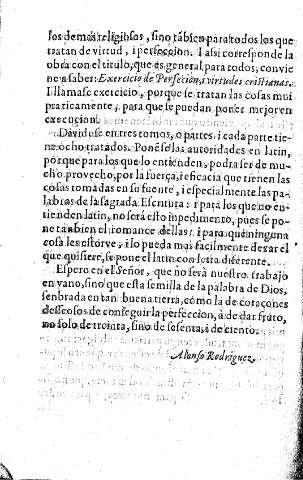 los demas religiosos, sino tãbien para todos los que
tratan de virtud, i perfeccion. I assi corresponde la
obra con el titulo, que es general para todos, convie
ne a saber: Exercicio de Perfecion, i virtudes cristianas.
I llamase exercicio, porque se tratan las cosas mui
praticamente, para que se puedan poner mejor en
execucion.
Dividese en tres tomos, o partes, i cada parte tie-
ne ocho tratados. Ponẽse las autoridades en latin,
porque para los que lo entienden, podra ser de mu-
cho provecho, por la fuerça, i eficacia que tienen las
cosas tomadas en su fuente, i especialmente las pa-
labras de la sagrada Escritura: i para los que no en-
tienden latin, no será esto impedimento, pues se po-
ne tambien el romance dellas: i para que ninguna
cosa les estorve, i lo pueda mas facilmente dexar el
que quisiere, se pone el latin con letra diferente.
Espero en el Señor, que no será nuestro trabajo
en vano, sino que esta semilla de la palabra de Dios,
senbrada en tan buena tierra, como la de coraçones
desseosos de conseguir la perfeccion, à de dar fruto,
no solo de treinta, sino de sesenta, i de ciento.
Alonso Rodriguez.